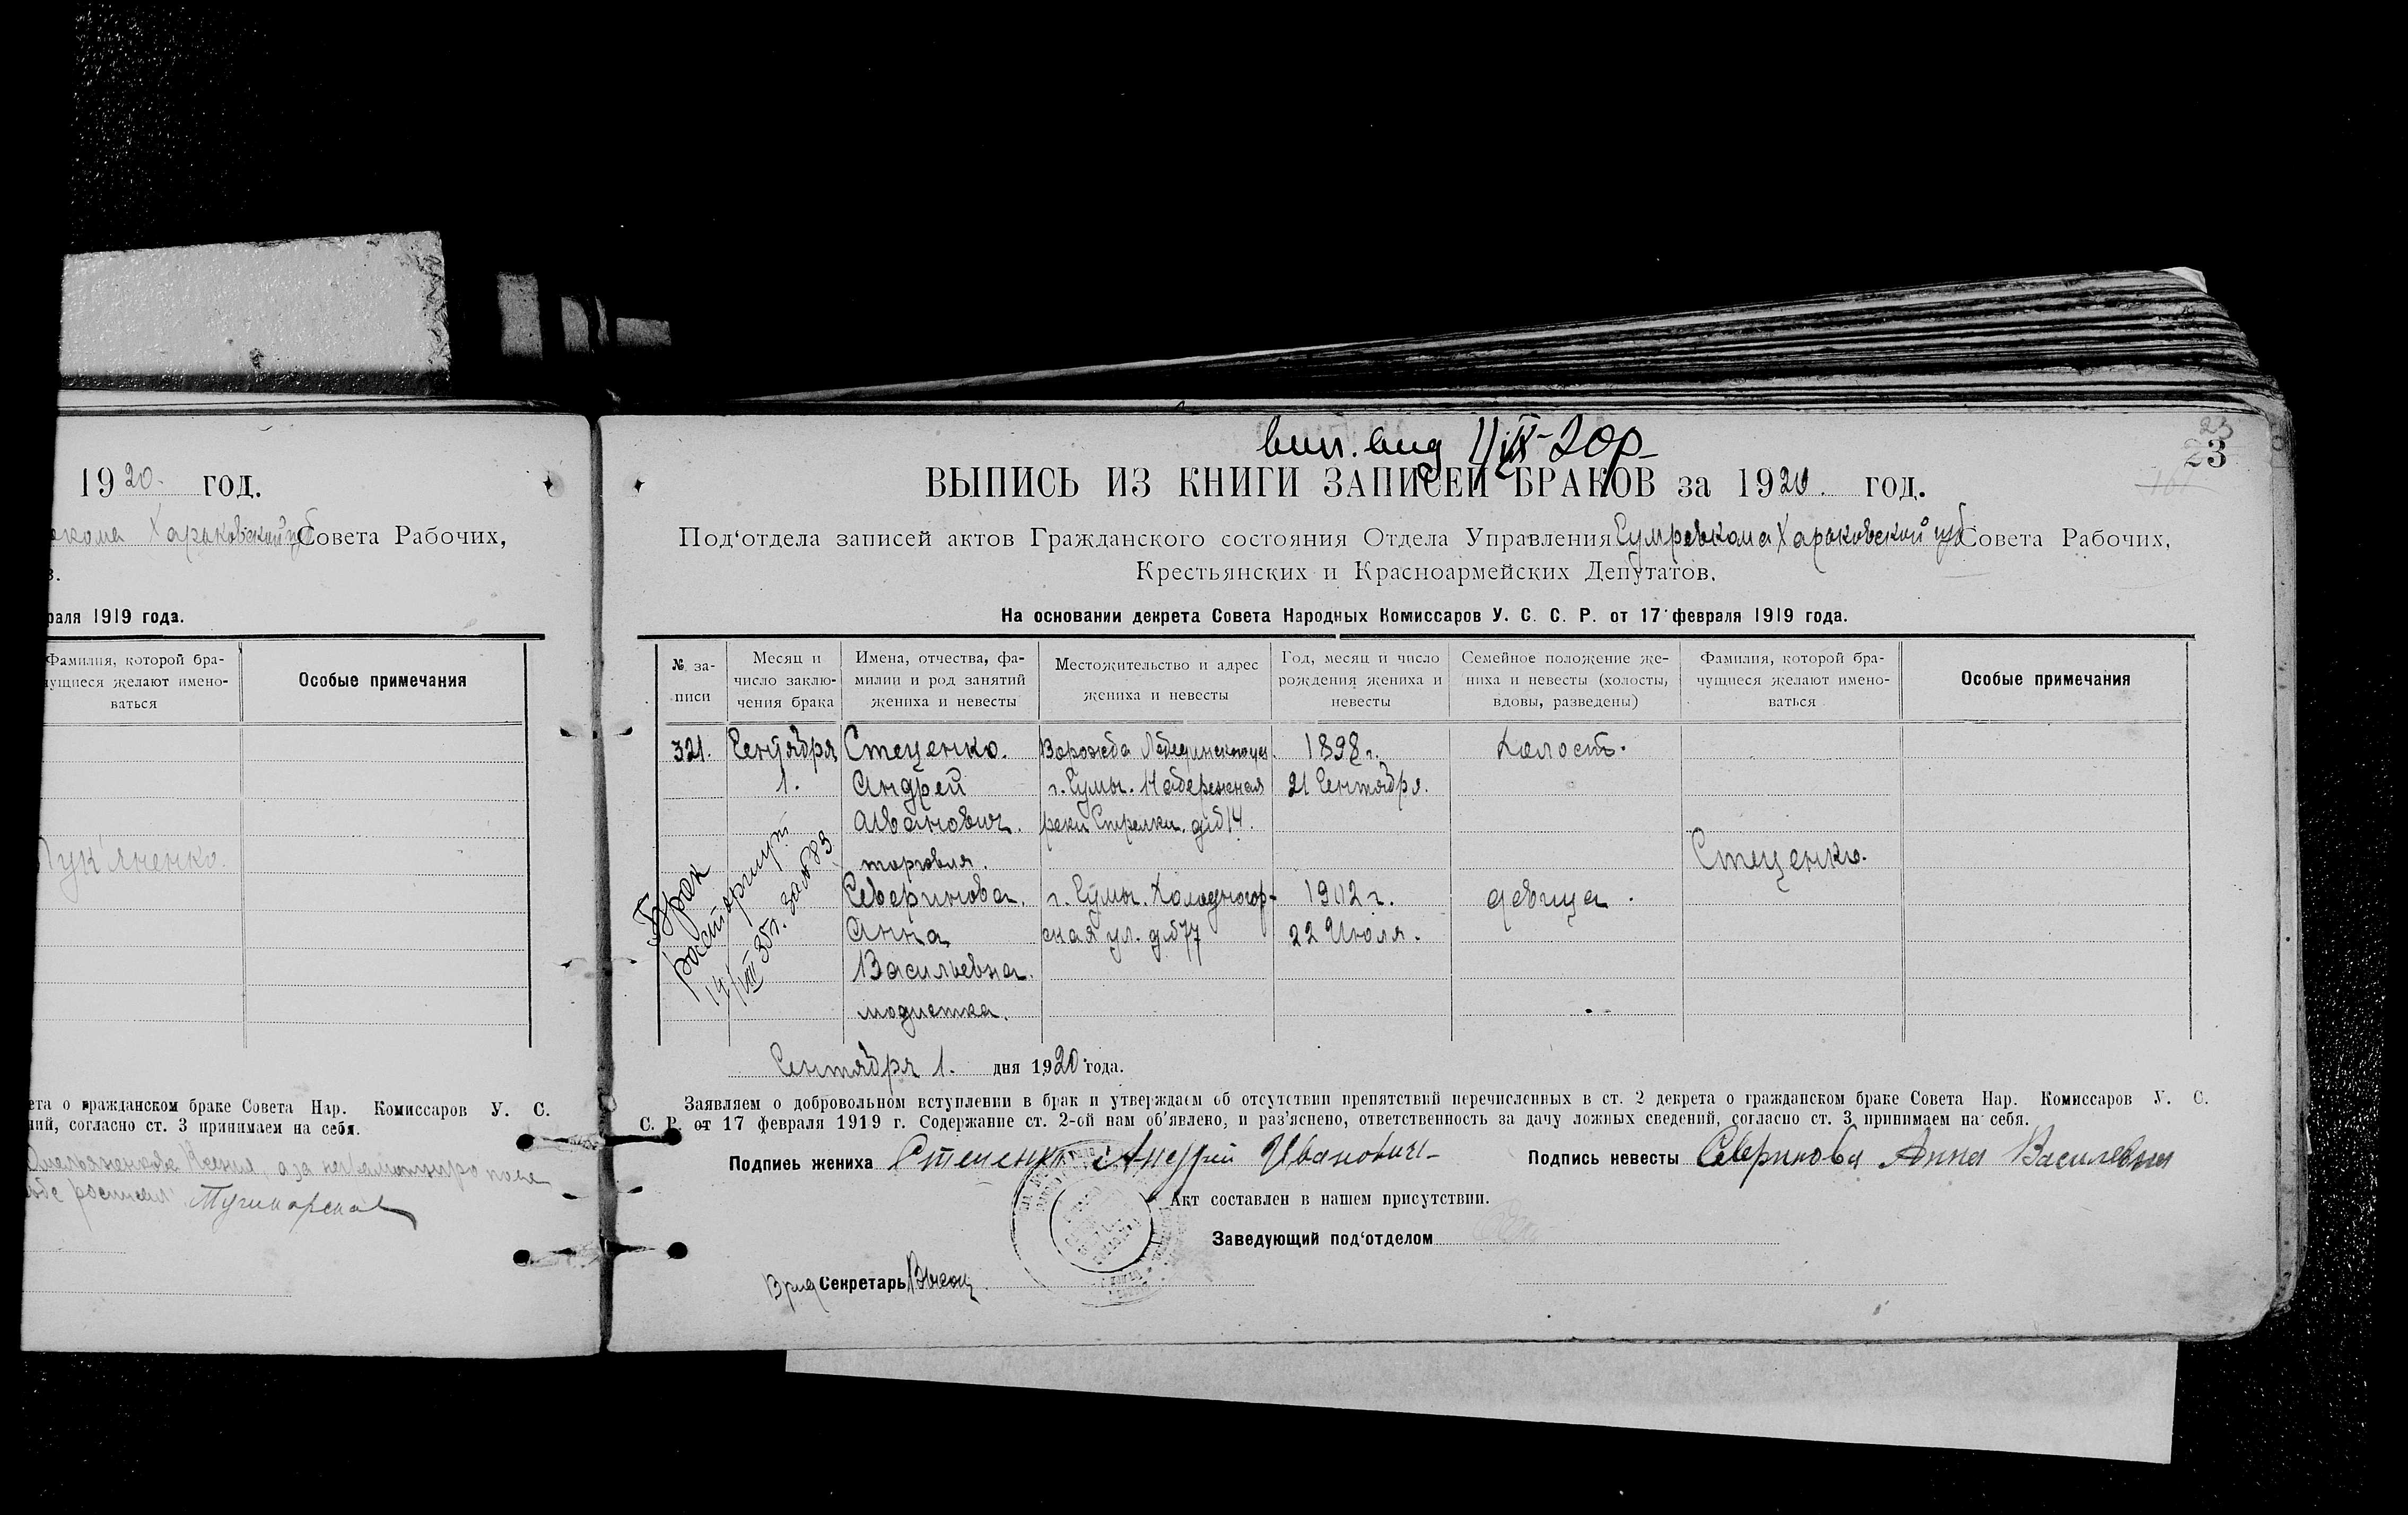 1920. год.
Харьковской губ Совета Рабочих,
в.
раля 1919 года.
Фамилия, которой бра-
чущиеся желают имено-
ваться
Особые примечания
Лук'яненко.
ета о гражданском браке Совета Нар. Комиссаров У. С.
ний, согласно ст. 3 принимаем на себя.
Ксения, а за неграмотную
вип. вид 1/IX-20р.
23
23
ВЫПИСЬ ИЗ КНИГИ ЗАПИСЕЙ БРАКОВ за 1920. год.
Под‘отдела записей актов Гражданского состояния Отдела Управления Сумревкома Харьковской губ Совета Рабочих,
Крестьянских и Красноармейских Депутатов.
На основании декрета Совета Народных Комиссаров У. С. С. Р. от 17 февраля 1919 года.
№ за-
писи
Месяц и
число заклю-
чения брака
Имена, отчества, фа-
милии и род занятий
жениха и невесты
Местожительство и адрес
жениха и невесты
Год, месяц и число
рождения жениха и
невесты
Семейное положение же-
ниха и невесты (холосты,
вдовы, разведены)
Фамилия, которой бра-
чущиеся желают имено-
ваться
Особые примечания
321. Сентября Стеценко. Ворожба Лебединского уез. 1898 г. Холост.
1. Андрей г. Сумы. Набережная 21 Сентября.
Иванович. реки Стрелки. д. №14.
торговля. Стеценко.
Северинова. г. Сумы. Холодногор- 1902 г. девица.
Анна ская ул. д. №77 22 Июля.
Васильевна.
модистка.
Брак
расторгнут
14/VIII 35г. за №83
Сентября 1. дня 1920 года.
Заявляем о добровольном вступлении в брак и утверждаем об отсутствии препятствий перечисленных в ст. 2 декрета о гражданском браке Совета Нар. Комиссаров У. С.
С. Р. от 17 февраля 1919 г. Содержание ст. 2-ой нам об'явлено, и раз'яснено, ответственность за дачу ложных сведений, согласно ст. 3 принимаем на себя.
Подпись жениха Стеценко Андрей Иванович Подпись невесты Северинова Анна Василевна
Акт составлен в нашем присутствии.
Заведующий под‘отделом
Врид Секретарь